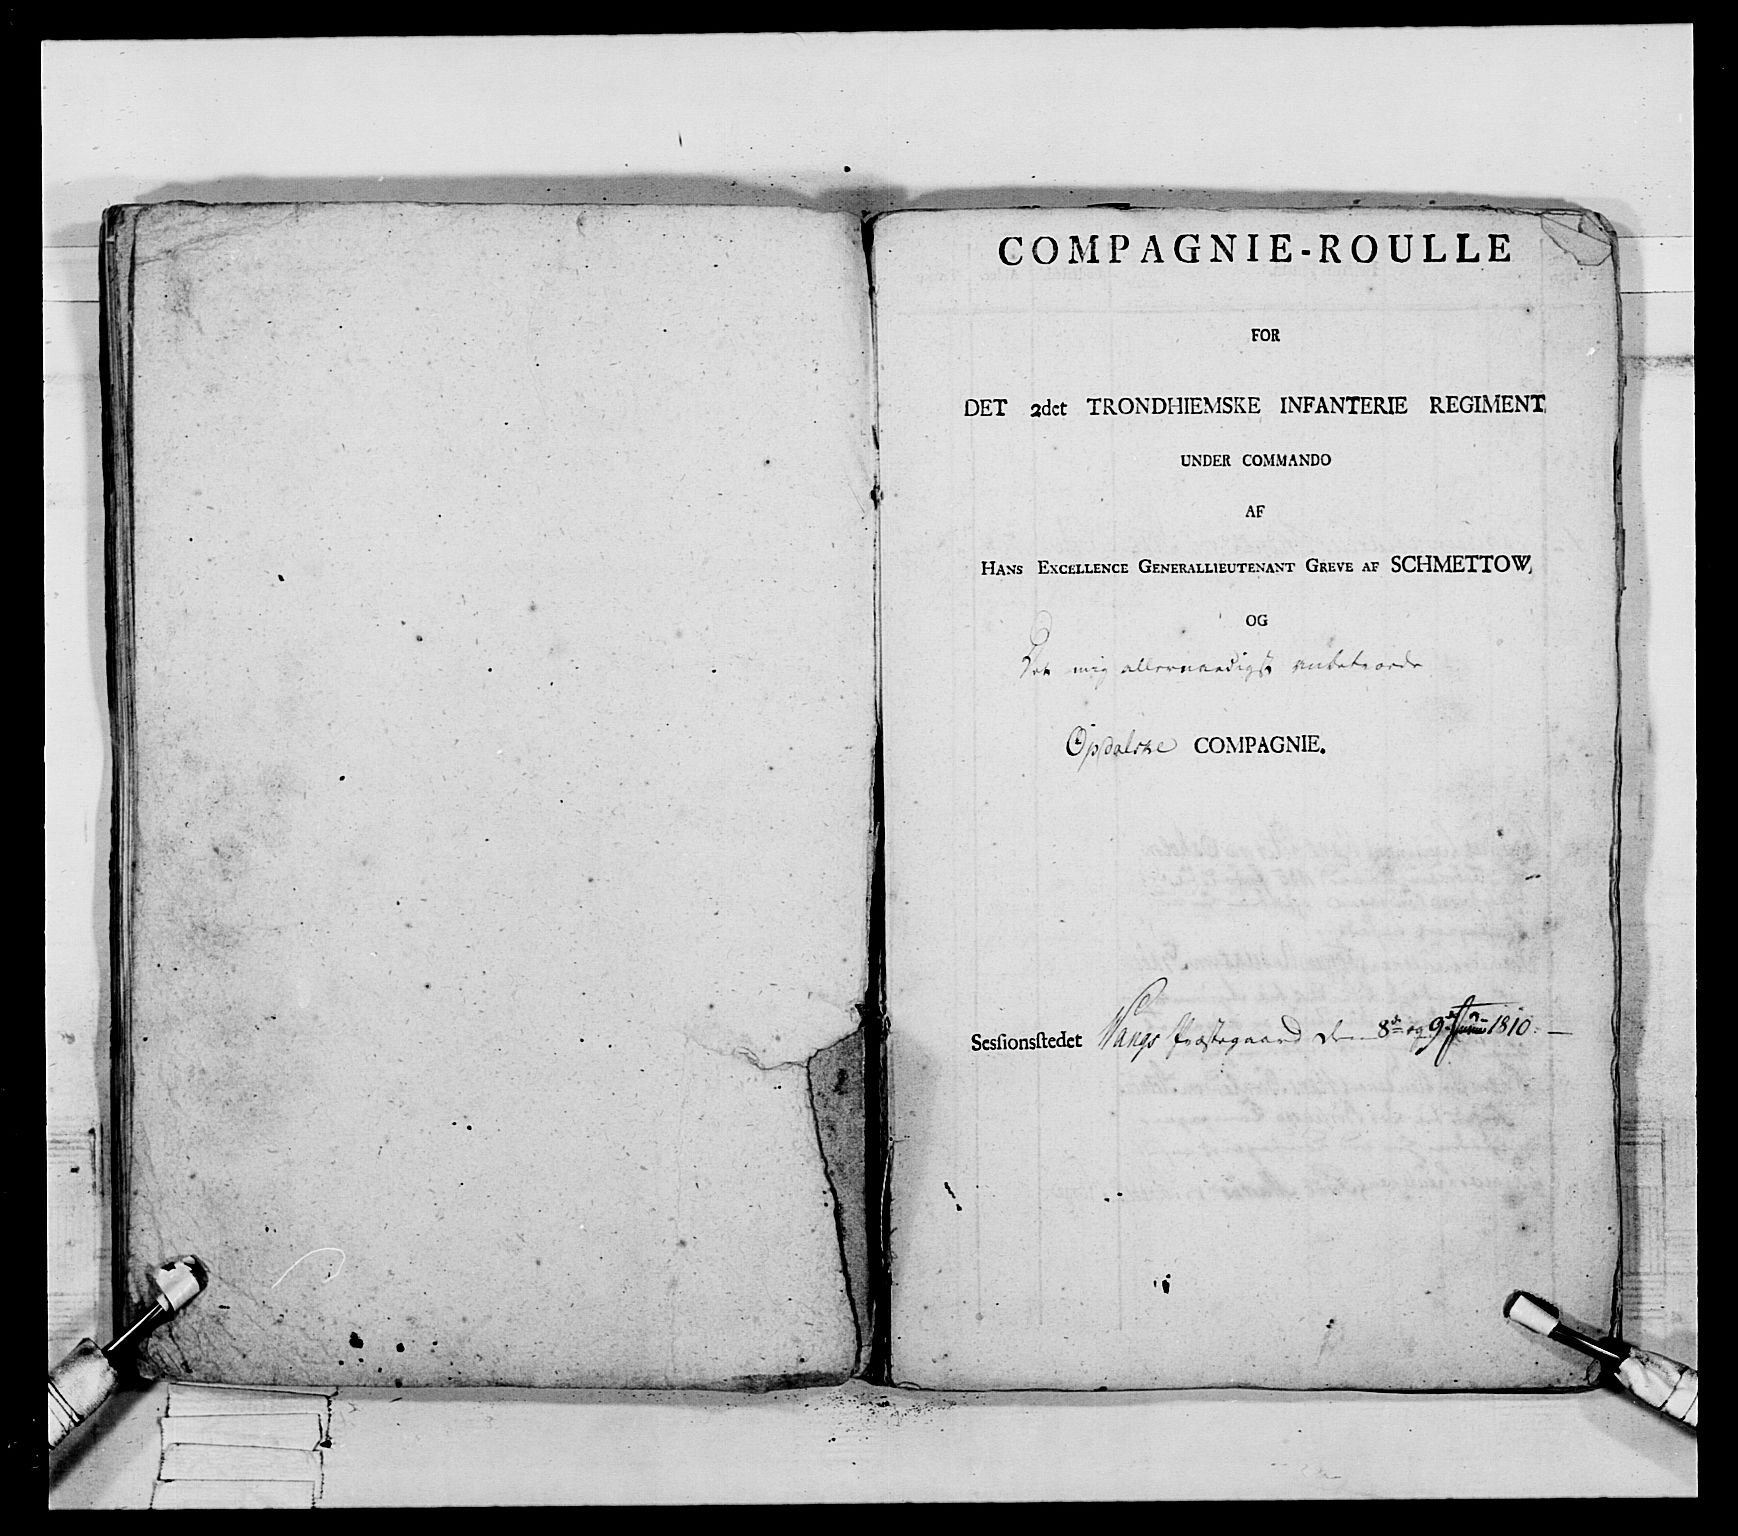 COMPAGNIE-ROULLE
FOR
DET 2det TRONDHIEMSKE INFANTERIE REGIMENT
UNDER COMMANDO
AF
HANS EXCELLENCE GENERALLIEUTENANT GREVE AF SCHMETTOW,
OG
Det mig allernaadigst anbetroede
Opdalske COMPAGNIE.
Sesſionsſtedet Vangs Præstegaard den 8de og 9de Juni 1810. —